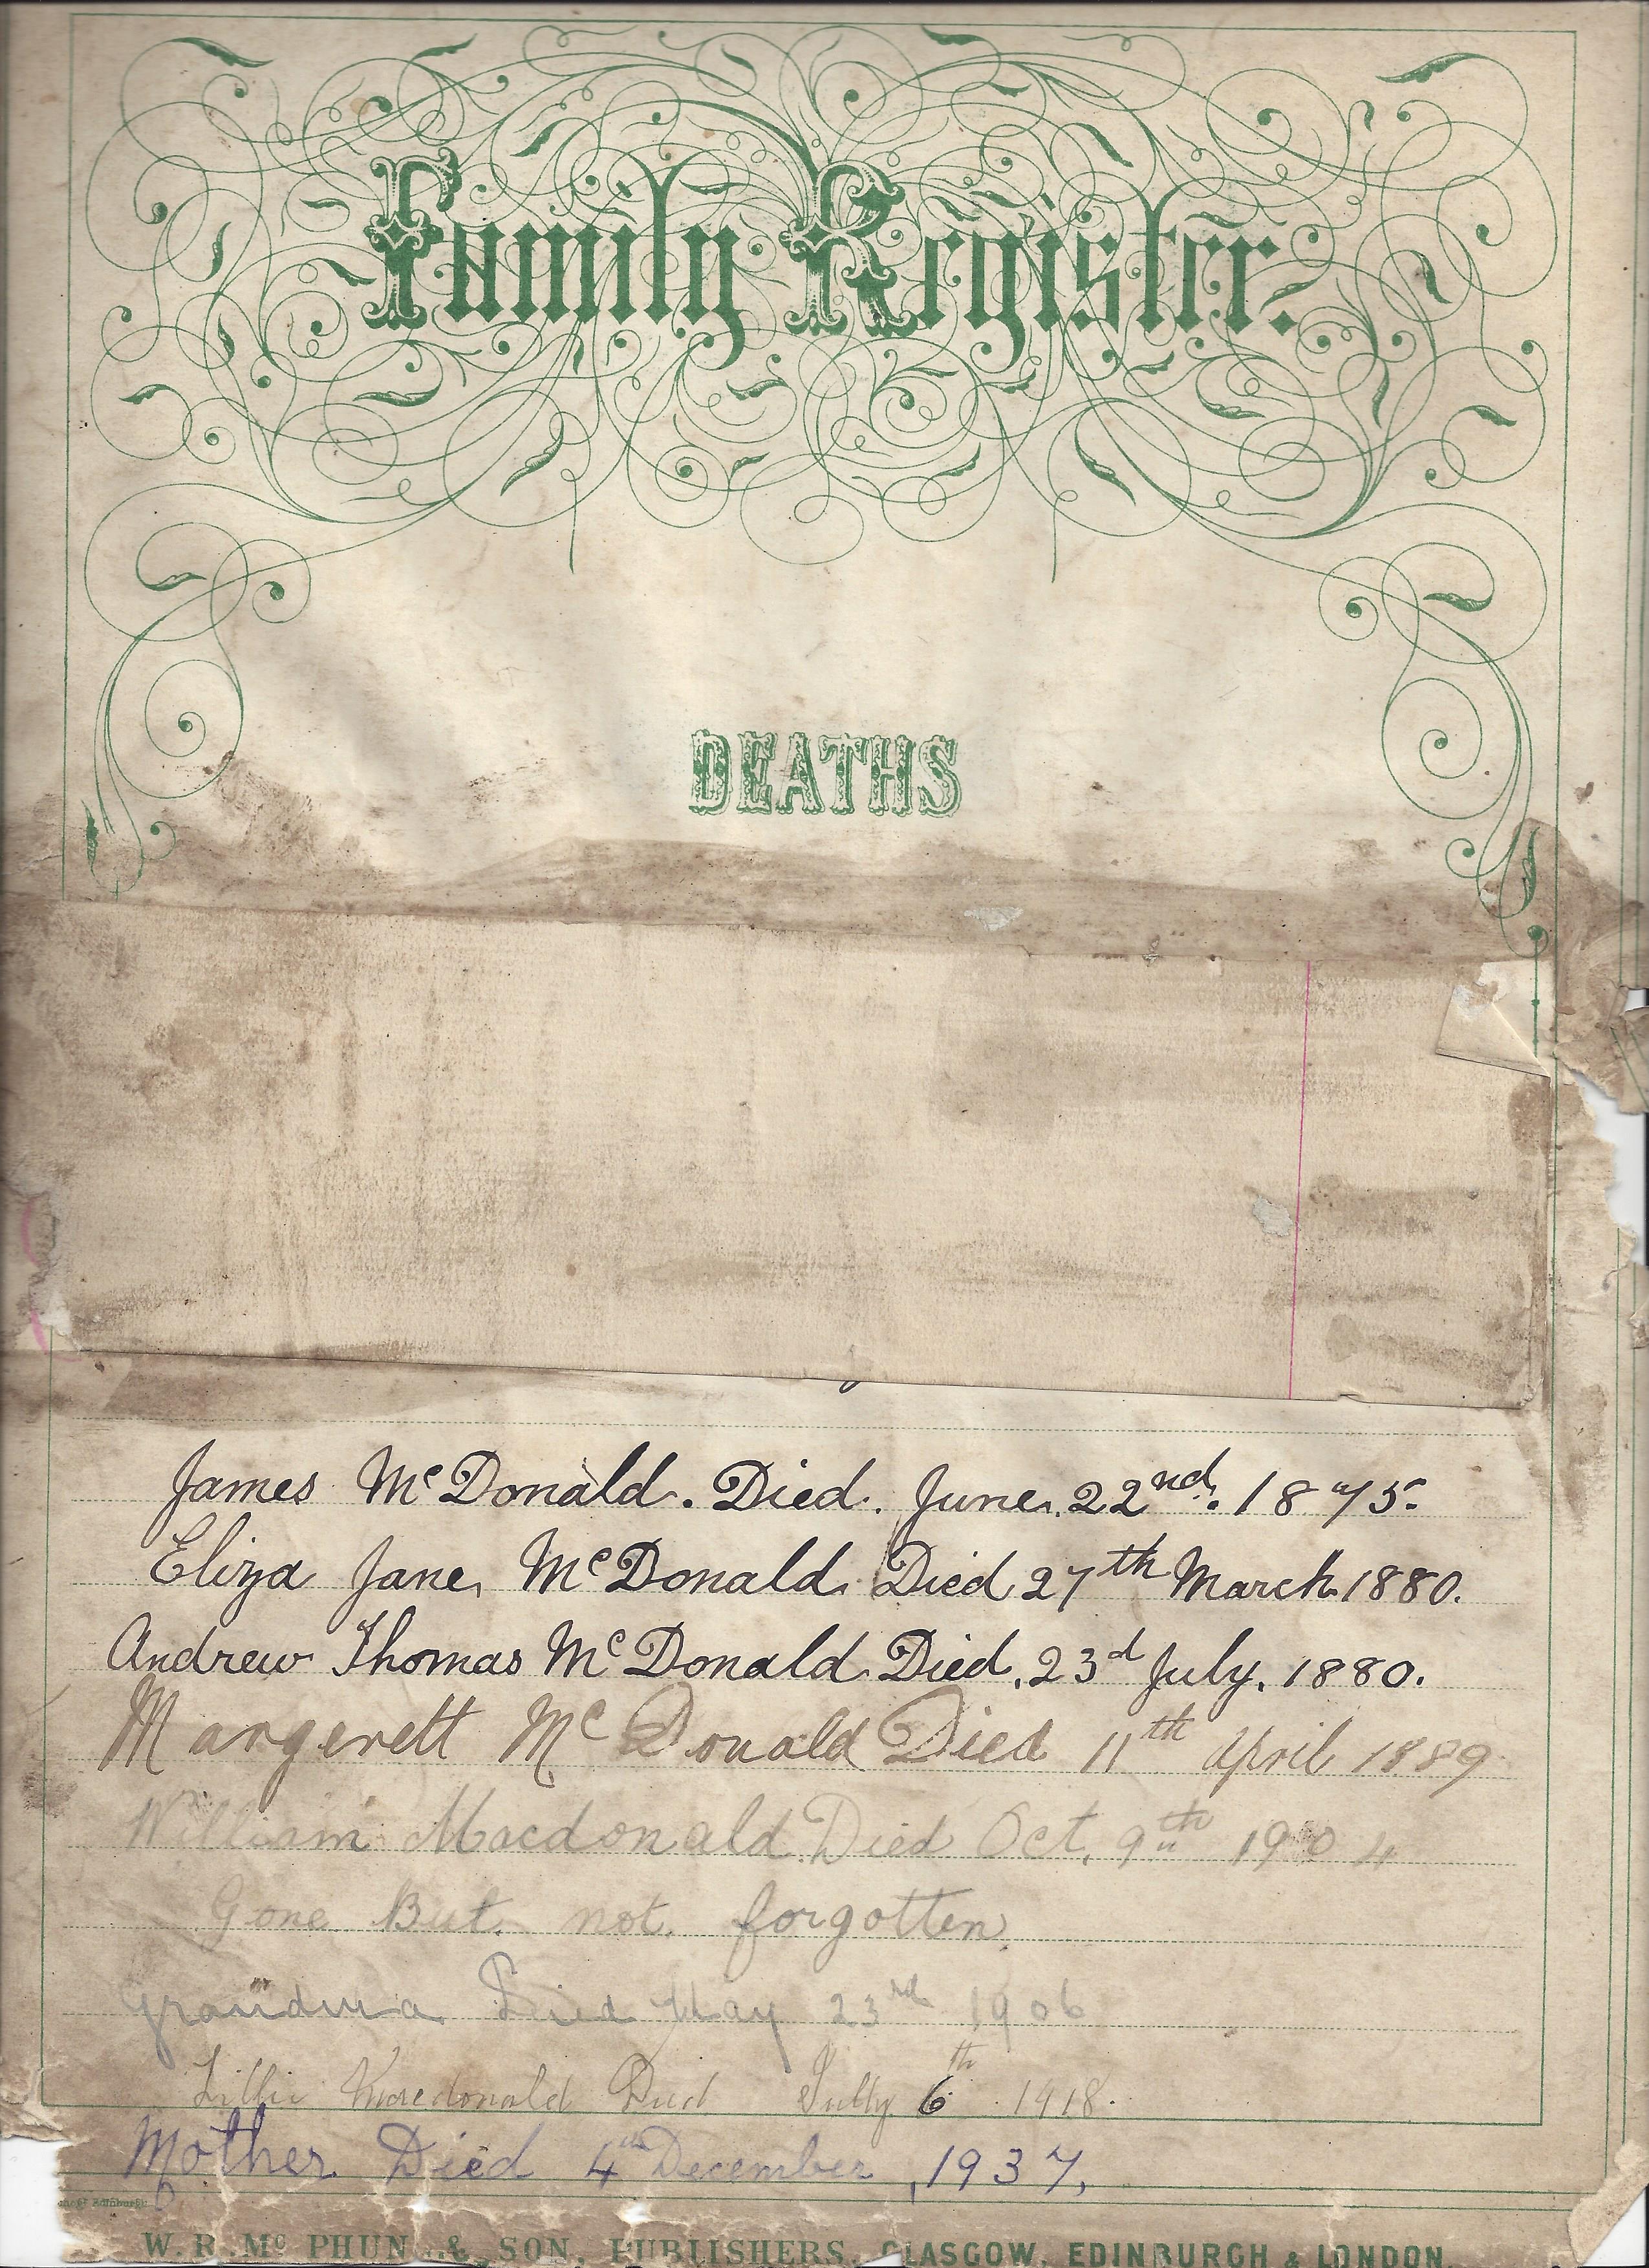 Family Register.
DEATHS
James McDonald. Died. June. 22nd. 1875.
Eliza Jane McDonald. Died 27th March 1880.
Andrew Thomas McDonald Died. 23d July. 1880.
Margerett McDonald Died 11th April 1889
William Macdonald Died Oct. 9th 1904
Gone But not forgotten
Grandma Died May 23rd 1906
Lillie Macdonald Died July 6th 1918.
Mother Died 4th December, 1937,
Edinburgh
W. R. Mc PHUN & SON, PUBLISHERS, GLASGOW, EDINBURGH & LONDON.